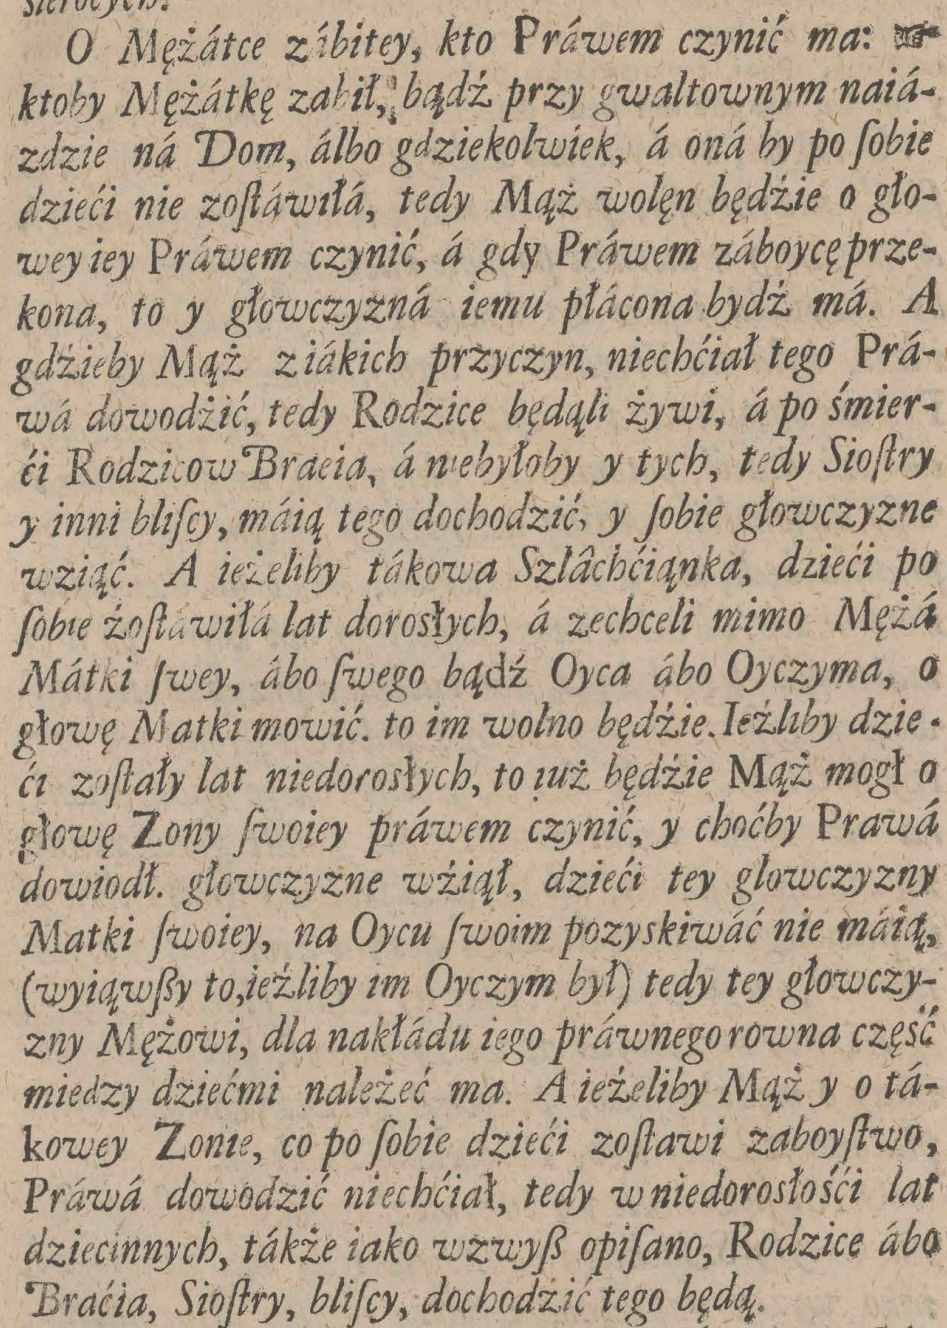 O Mężátce zábitey, kto Práwem czynić ma: ☞
ktoby Mężátkę zabił, bądź przy gwaltownym naiá-
zdzie ná Dom, álbo gdziekolwiek, á oná by po ſobie
dzieći nie zoſtáwiłá, tedy Mąż wolęn będźie o gło-
wey iey Práwem czynić, á gdy Práwem záboycę prze-
kona, to y głowczyzná iemu płácona bydź má. A
gdźieby Mąż z iákich przyczyn, niechćiał tego Prá-
wá dowodźić, tedy Rodzice będąli żywi, á po śmier-
ći Rodzicow Braeia, á niebyłoby y tych, tedy Sioſtry
y inni bliſcy, máią tego dochodzić, y ſobie głowczyzne
wziąć. A ieżeliby tákowa Szlâchćiąnka, dzieći po
ſobie żoſtáwiłá lat dorosłych, á zechceli mimo Mężá
Mátki ſwey, ábo ſwego bądź Oyca ábo Oyczyma, o
głowę Matki mowić. to im wolno będźie. Ieżliby dzie-
ći zoſtały lat niedorosłych, to iuż będźie Mąż mogł o
głowę Zony ſwoiey práwem czynić, y choćby Prawá
dowiodł. głowczyzne wźiął, dzieći tey glowczyzny
Matki ſwoiey, na Oycu ſwoim pozyskiwáć nie máią,
(wyiąwſzy to, ieźliby im Oyczym był) tedy tey głowczy-
zny Mężowi, dla nakłádu iego práwnego rowna część
miedzy dziećmi należeć ma. A ieżeliby Mąż y o tá-
kowey Zonie, co po ſobie dzieći zoſtawi zaboyſtwo,
Práwá dowodzić niechćiał, tedy w niedorosłośći lat
dziecinnych, tákże iako wzwyſz opiſano, Rodzice ábo
Braćia, Sioſtry, bliſcy, dochodzić tego będą.